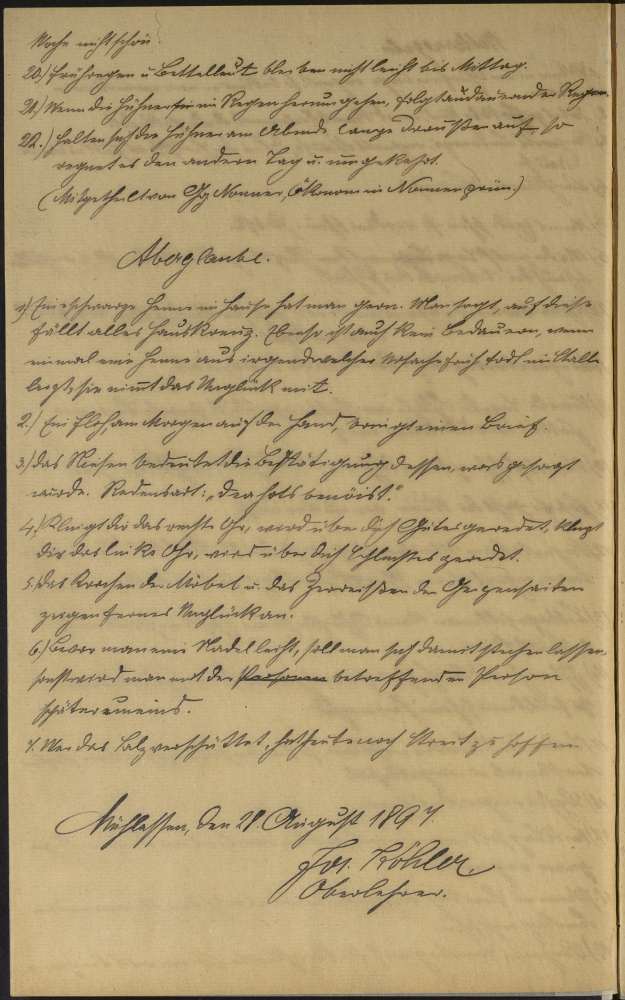 Woche nicht schön.
20.) Frühregen u. Bettelleut bleiben nicht leicht bis Mittag.
21.) Wenn die Hühner im Regen herumgehen, folgt andauernder Regen.
22.) Halten sich die Hühner am Abende lange draußen auf, so
regnet es den andern Tag u. umgekehrt.
(Mitgetheilt von Gg Nonner, Ökonom in Nonnengrün.)
Aberglaube.
1.) Eine schwarze Henne im Hause hat man gern. Man sagt, auf diese
fällt alles Hauskreuz. Ebenso ist auch kein Bedauern, wenn
einmal eine Henne aus irgendwelcher Ursache früh todt im Stalle
liegt, sie nimmt das Unglück mit.
2.) Ein Floh, am Morgen auf der Hand, bringt einen Brief.
3.) Das Niesen bedeutet die Bestätigung dessen, was gesagt
wurde. Redensart: „Dea hots benöist."
4.) Klingt dir das rechte Ohr, wird über dich Gutes geredet, klingt
dir das linke Ohr, wird über dich Schlechtes geredet.
5.) Das Krachen der Möbel u. das Zerreißen der Geigensaiten
zeigen fernes Unglück an.
6.) Bevor man eine Nadel leiht, soll man sich damit stechen lassen,
sonst wird man mit der Personen betreffenden Person
später uneins.
7. Wer das Salz verschüttet, hat heute noch Streit zu hoffen
Mühlessen, den 28. August 1897.
Jos. Köhler.
Oberlehrer.